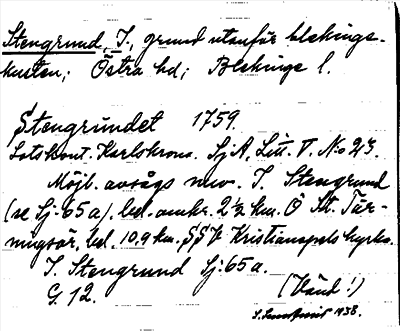 Stengrund, I., grund utanför blekinge-
kusten; Östra hd; Blekinge l.
Stengrundet 1759.
Lotskont. Karlskrona. SjA, Litt. V. No 23.
Möjl. avsågs nuv. I. Stengrund
(se Sj. 65a), bel. omkr. 2½ km. Ö St. Tär-
ningsör, bel. 10.9 km. SSV Kristianopels kyrka.
I. Stengrund Sj: 65a.
G. 12.
(Vänd!)
1938.